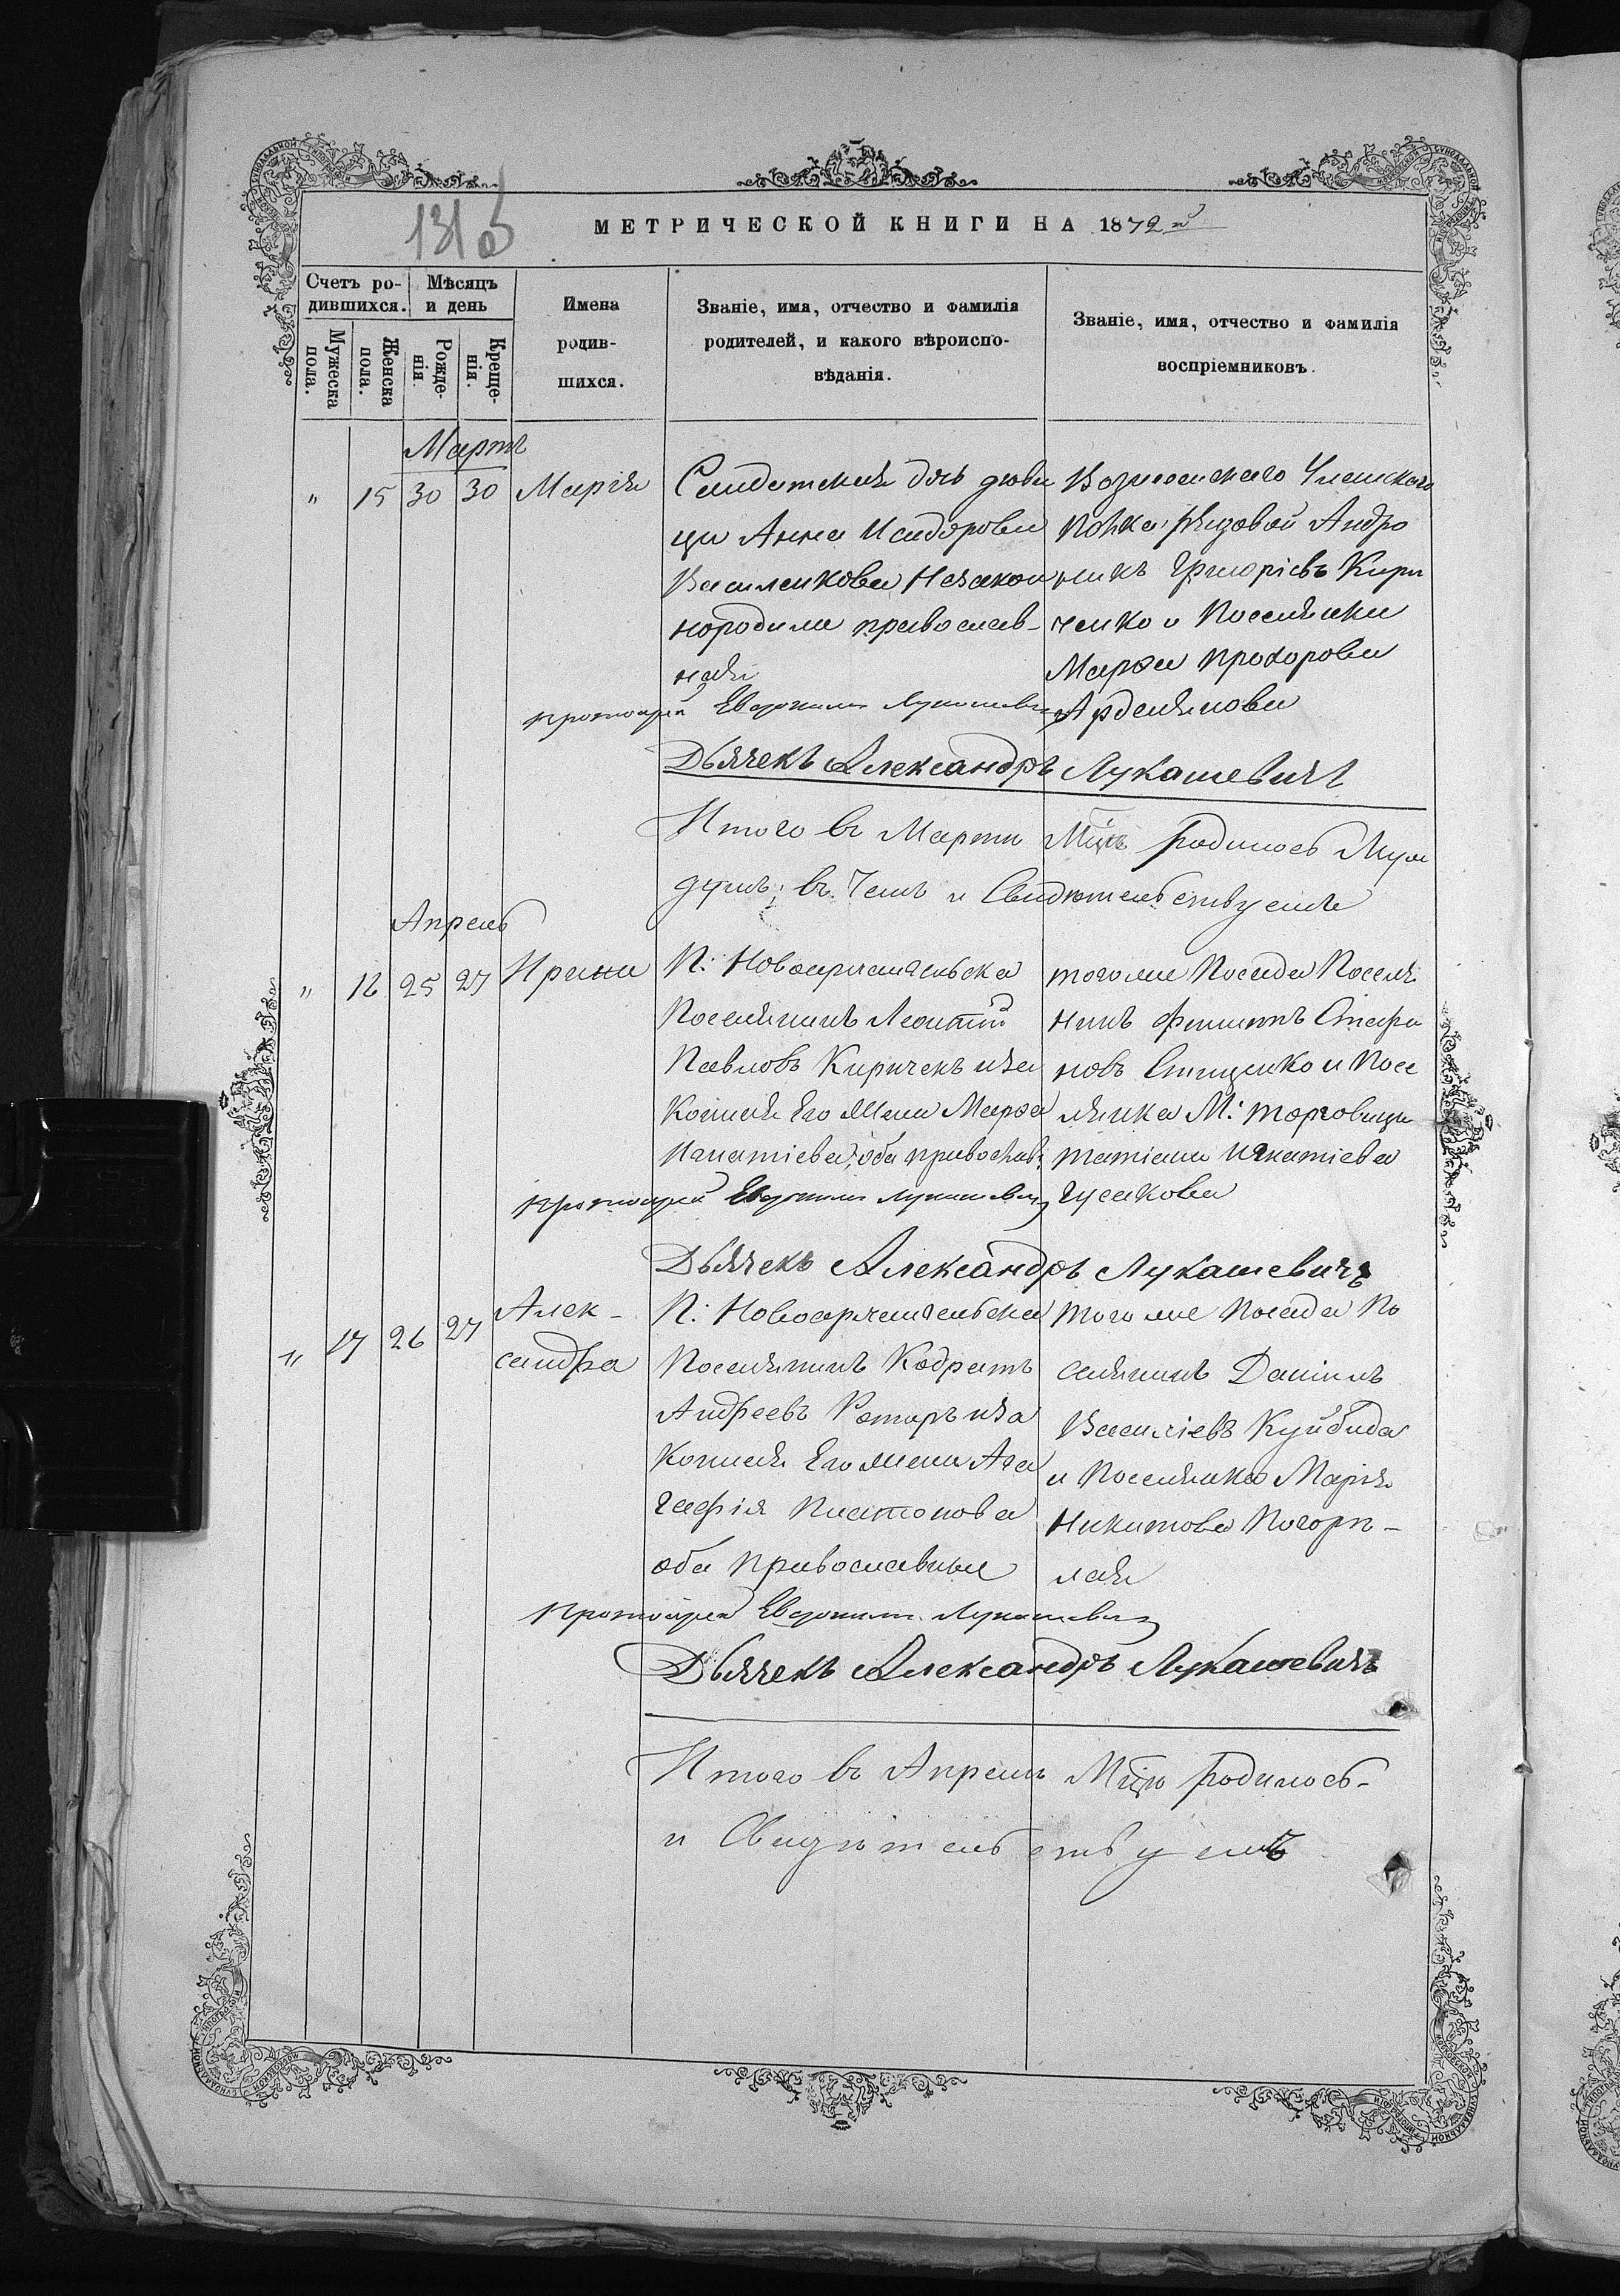 131 об
МЕТРИЧЕСКОЙ КНИГИ НА 1872й
Счетъ ро-
дившихся.
Мѣсяцъ
и день
Мужеска
пола.
Женска
пола.
Рожде-
нія.
Креще-
нія.
Имена
родив-
шихся.
Званіе, имя, отчество и фамилія
родителей, и какого вѣроиспо-
вѣданія.
Званіе, имя, отчество и фамилія
воспріемниковъ.
Мартъ
" 15 30 30 Марія
Солдатская дочь дѣви
ца Анна Исидорова
Василенкова Незакон
нородила православ-
ная
Вознесенскаго Уланскаго
Полка Рядовой Андро
никъ Григоріевъ Кири
ченко и Поселянка
Марѳа Прохорова
протоіерей Евдокимъ Лукашевичъ
Дьячекъ Александръ Лукашевичъ
Итого въ Мартѣ Мцѣ родилось
въ Чемъ и Свидѣтельствуемъ
Апрель
" 16 25 27 Ирина
П: Новоархангельска
Поселянинъ Леонтій
Павловъ Киричекъ иза
конная Его Жена Марѳа
Игнатіева, оба православ:
тогоже Посада Поселя
нинъ Филиппъ Стефа
новъ Стиценко и Посе
лянка М: Торговицы
Татіана Игнатіева
Гусакова
протоіерей Евдокимъ Лукашевичъ
Дьячекъ Александръ Лукашевичъ
" 17 26 27 Алек-
сандра
П: Новоархангельска
Поселянинъ Кодратъ
Андреевъ Ротарь иза
конная Его жена Ага
ѳафія Платонова
оба православные
того же Посада По
селянинъ Даніилъ
Василіевъ Куйбида
и Поселянка Марія
Никитова Погорѣ-
лая
протоіерей Евдокимъ Лукашевичъ
Дьячекъ Александръ Лукашевичъ
Итого въ Апрелѣ Мцѣ родилось-
и Свидѣтельствуемъ